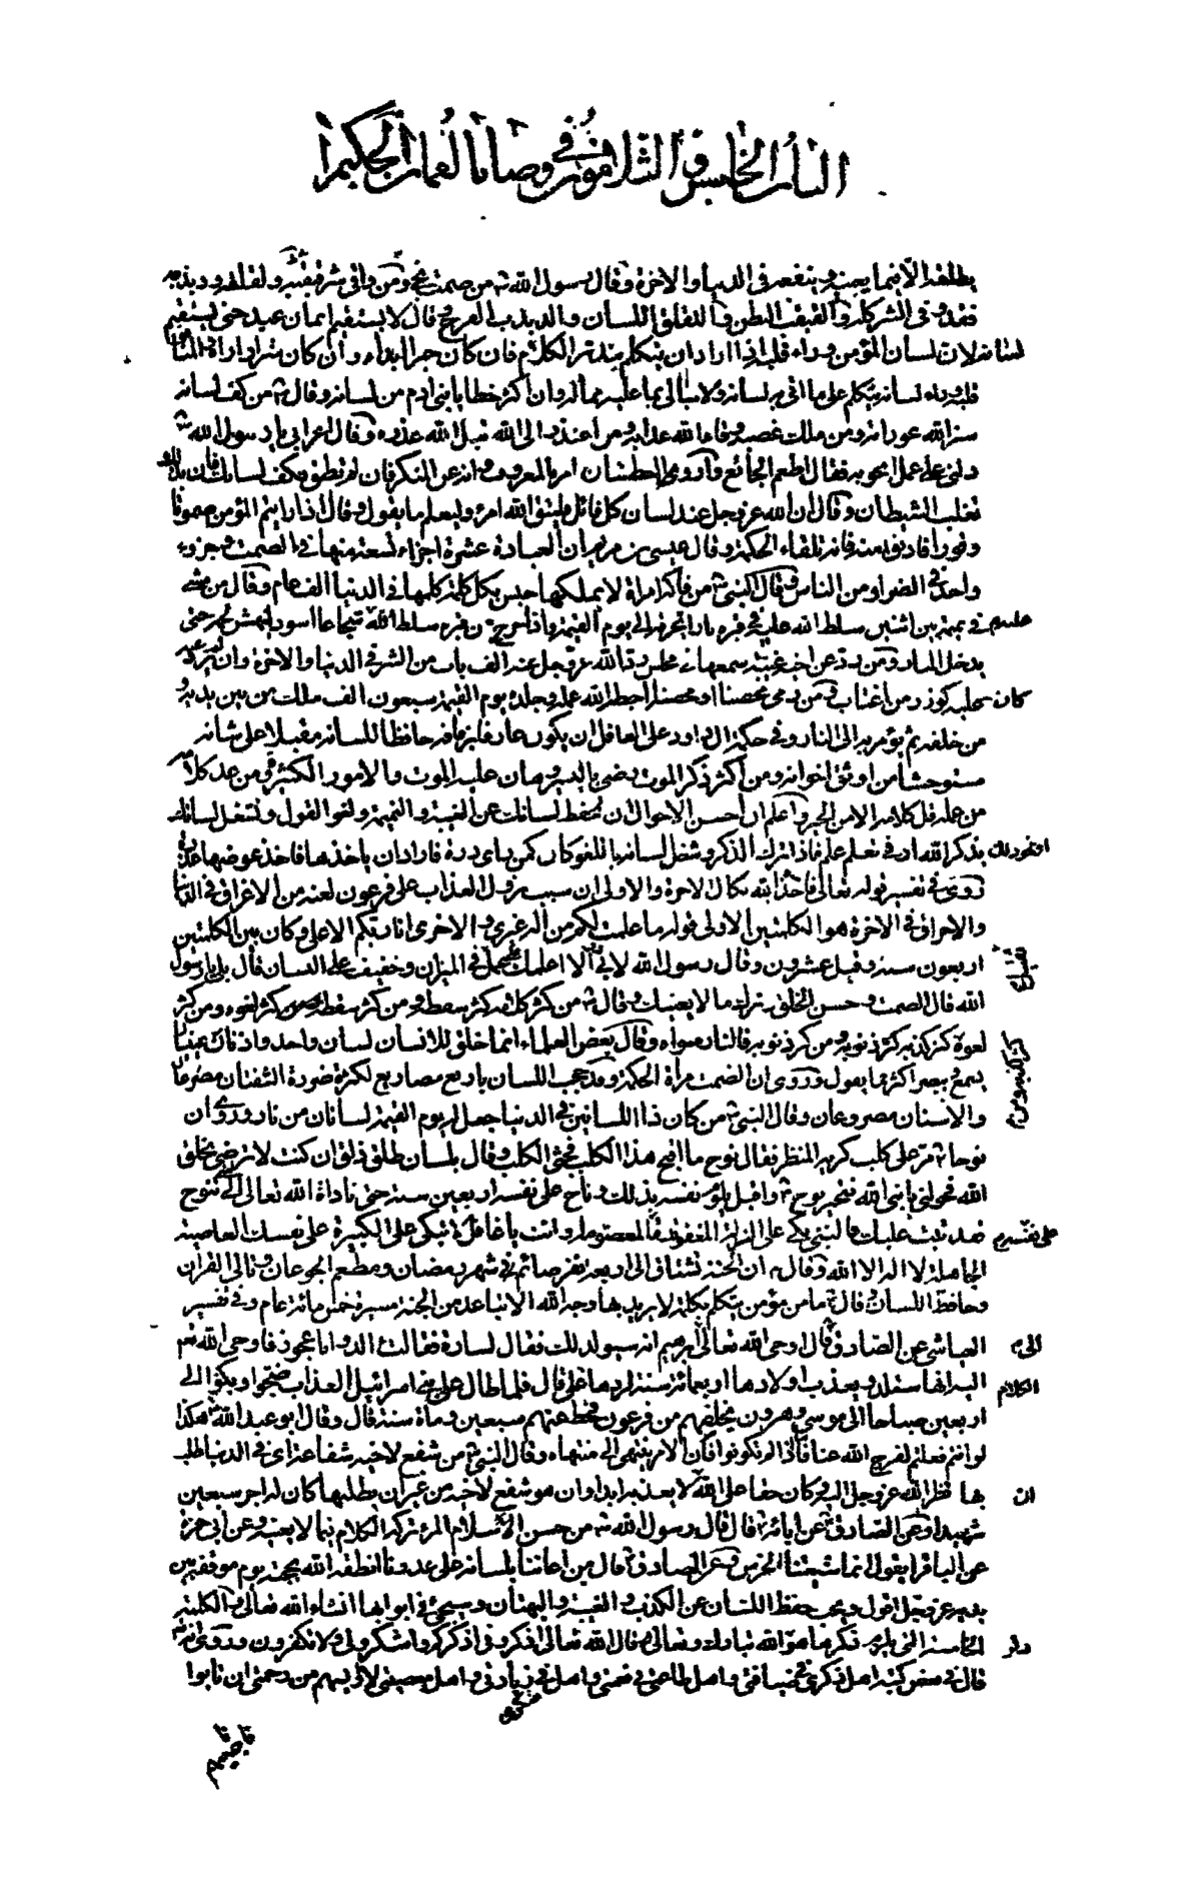 الباب الخامس و الثلاثون في وصايا لقمان الحكيم
بلفظ الا فيما يعنيه وينفعه في الدنيا والاخرة وقال رسول الله ص من صمت نجى ومن وقى شر قبقبه ولقلقه وذبذبه
فقد وقى الشر كله والقبقب البطن واللقلق اللسان والذبذب الفرج وقال لا يستقيم ايمان عبد حتى يستقيم
لسانه لان لسان المؤمن وراء قلبه اذا اراد ان يتكلم يتدبر الكلام فان كان خيرا ابداه وان كان شرا واراه المنافق
قلبه وراء لسانه يتكلم على ما اتى به لسانه ولا يبالي بما عليه مما له وان اكثر خطايا بني ادم من لسانه وقال ص من كف لسانه
ستر الله عوراته ومن ملك غضبه وقاه الله عذابه ومن اعتذر الى الله قبل الله عذره وقال اعرابي يا رسول الله ص
دلني على عمل انجو به فقال اطعم الجائع وارو الظمآن وامر بالمعروف وانه عن المنكر فان لم تطق فكف لسانك فانك بذلك
تغلب الشيطان وقال ان الله عز وجل عند لسان كل قائل فليتق الله امرء وليعلم ما يقول وقال اذا رايتم المؤمن صموتا
وقورا فادنوا منه فانه تلقاء الحكمة وقال عيسى بن مريم ان العبادة عشرة اجزاء تسعة منها في الصمت وجزء
واحد في الفرار من الناس وقال النبي ص من فاكه امراة لا يملكها حبس بكل كلمة كلمها في الدنيا الف عام وقال من مشى
في نميمة بين اثنين سلط الله عليه في قبره نارا تحرقه الى يوم القيمة واذا خرج من قبره سلط الله تنينا اسود ينهش لحمه حتى
يدخل النار ومن رد عن اخيه غيبة سمعها في مجلس رد الله عز وجل عنه الف باب من الشر في الدنيا والاخرة وان لم يرد عنه
كان عليه كوزر من اغتاب ومن رمى محصنا او محصنة احبط الله عمله وجلده يوم القيمة سبعون الف ملك من بين يديه و
من خلفه ثم يؤمر به الى النار وفي حكمة ال داود على العاقل ان يكون عارفا بزمانه حافظا للسانه مقبلا على شانه
مستوحشا من اوثق اخوانه ومن اكثر ذكر الموت رضي باليسير وهان عليه الموت والامور الكثيرة ومن عد كلامه
من عمله قل كلامه الا من الخير واعلم ان احسن الاحوال ان تحفظ لسانك عن الغيبة والنميمة ولغو القول وتشغل لسانك
بذكر الله او في تعلم علم فاذا ترك الذكر وشغل لسانه باللغو كان كمن راى درة فاراد ان ياخذها فاخذ عوضها مدرة
روى في تفسير قوله تعالى فاخذه الله نكال الاخرة والاولى ان سبب نزول العذاب على فرعون لعنه من الاغراق في الدنيا
والاحراق في الاخرة هو الكلمتين الاولى قوله ما علمت لكم من اله غيري و الاخرى انا ربكم الاعلى وكان بين الكلمتين
اربعون سنة وقيل عشرون وقال رسول الله لابي الا اعلمك بعمل ثقيل في الميزان وخفيف على اللسان قال بلى يا رسول
الله قال الصمت و حسن الخلق وترك ما لا يعنيك وقال ص من كثر كلامه كثر سقطه ومن كثر سقطه كثر لغوه ومن كثر
لغوه كثر كذبه كثر ذنوبه ومن كثر ذنوبه فالنار مثواه وقال بعض العلماء انما خلق للانسان لسان واحد واذنان عينان
يسمع ويبصر اكثر مما يقول وروى ان الصمت مراة الحكمة وقد حجب اللسان باربع مصاريع لكثرة ضرره الشفتان مصرعان
والاسنان مصرعان وقال النبي ص من كان ذا اللسانين في الدنيا جعل له يوم القيمة لسانان من نار وروى ان
نوحا ع مر على كلب كريه المنظر فقال نوح ما اقبح هذا الكلب فجثى الكلب وقال بلسان طلق ذلق ان كنت لا ترضى بخلق
الله فحولني يا نبي الله فتحير نوح ع واقبل يلوم نفسه بذلك وناح على نفسه اربعين سنة حتى ناداه الله تعالى الى كم تنوح
على نفسه
فقد تبت عليك فالنبي يبكي على الزلة المغفولة المعصومة وانت يا غافل لا تبكي على الكبيرة على نفسك العاصية
الجاهلة لا اله الا الله وقال ص ان الجنة تشتاق الى اربعة نفر صائم في شهر رمضان ومطعم الجوعان وتالي القران
وحافظ اللسان وقال ع ما من مؤمن يتكلم بكلمة لا يريد بها وجه الله الا تباعد من الجنة مسيرة خمس مائة عام وفي تفسير
العياشي عن الصادق ع قال اوحى الله تعالى الى ابرهيم انه سيولد لك فقال لسارة فقالت االد وانا عجوز فاوحى الله تعم
اليه انها ستلد ويعذب اولادها اربعمائة سنة لردها الكلام على قال فلما طال على بني اسرائيل العذاب ضجوا وبكوا الى
اربعين صباحا الى موسى وهرون يخلصهم من فرعون فحط عنهم سبعين وماة سنة قال وقال ابو عبد الله ع هكذا
لو انتم فعلتم لفرج الله عنا فاذا لم تكونوا فان الامر ينتهي الى منتهاه وقال النبي ص من شفع لاخيه شفاعة في الدنيا طلب
بها نظر الله عز وجل اليه وكان حقا على الله ان لا يعذبه ابدا وان هو شفع لاخيه من غير ان يطلبها كان له اجر سبعين
شهيدا وعن الصادق ع عن ابائه ع قال قال رسول الله ص من حسن الاسلام المرء تركه الكلام فيما لا يعنيه وعن ابي حمزة
عن الباقر يقول انما شيعتنا الخرس وعن الصادق ع قال من اعاننا بلسانه على عدونا انطقه الله بحجته يوم موقفه بين
يديه عز وجل اقول ويجب حفظ اللسان عن الكذب و الغيبة و البهتان وسيجئ في ابوابها انشاء الله تعالى و الكلمة
الخامسة التي يلزم تكرارها هو الله تبارك وتعالى قال الله تعالى اذكروني اذكركم واشكروا لي ولا تكفرون وروى انه
قال في بعض كتبه اهل ذكري في ضيافتي واهل طاعتي في نعمتي واهل شكري في زيادتي و اهل معصيتي لا اويسهم من رحمتي ان تابوا
فاحبيبهم